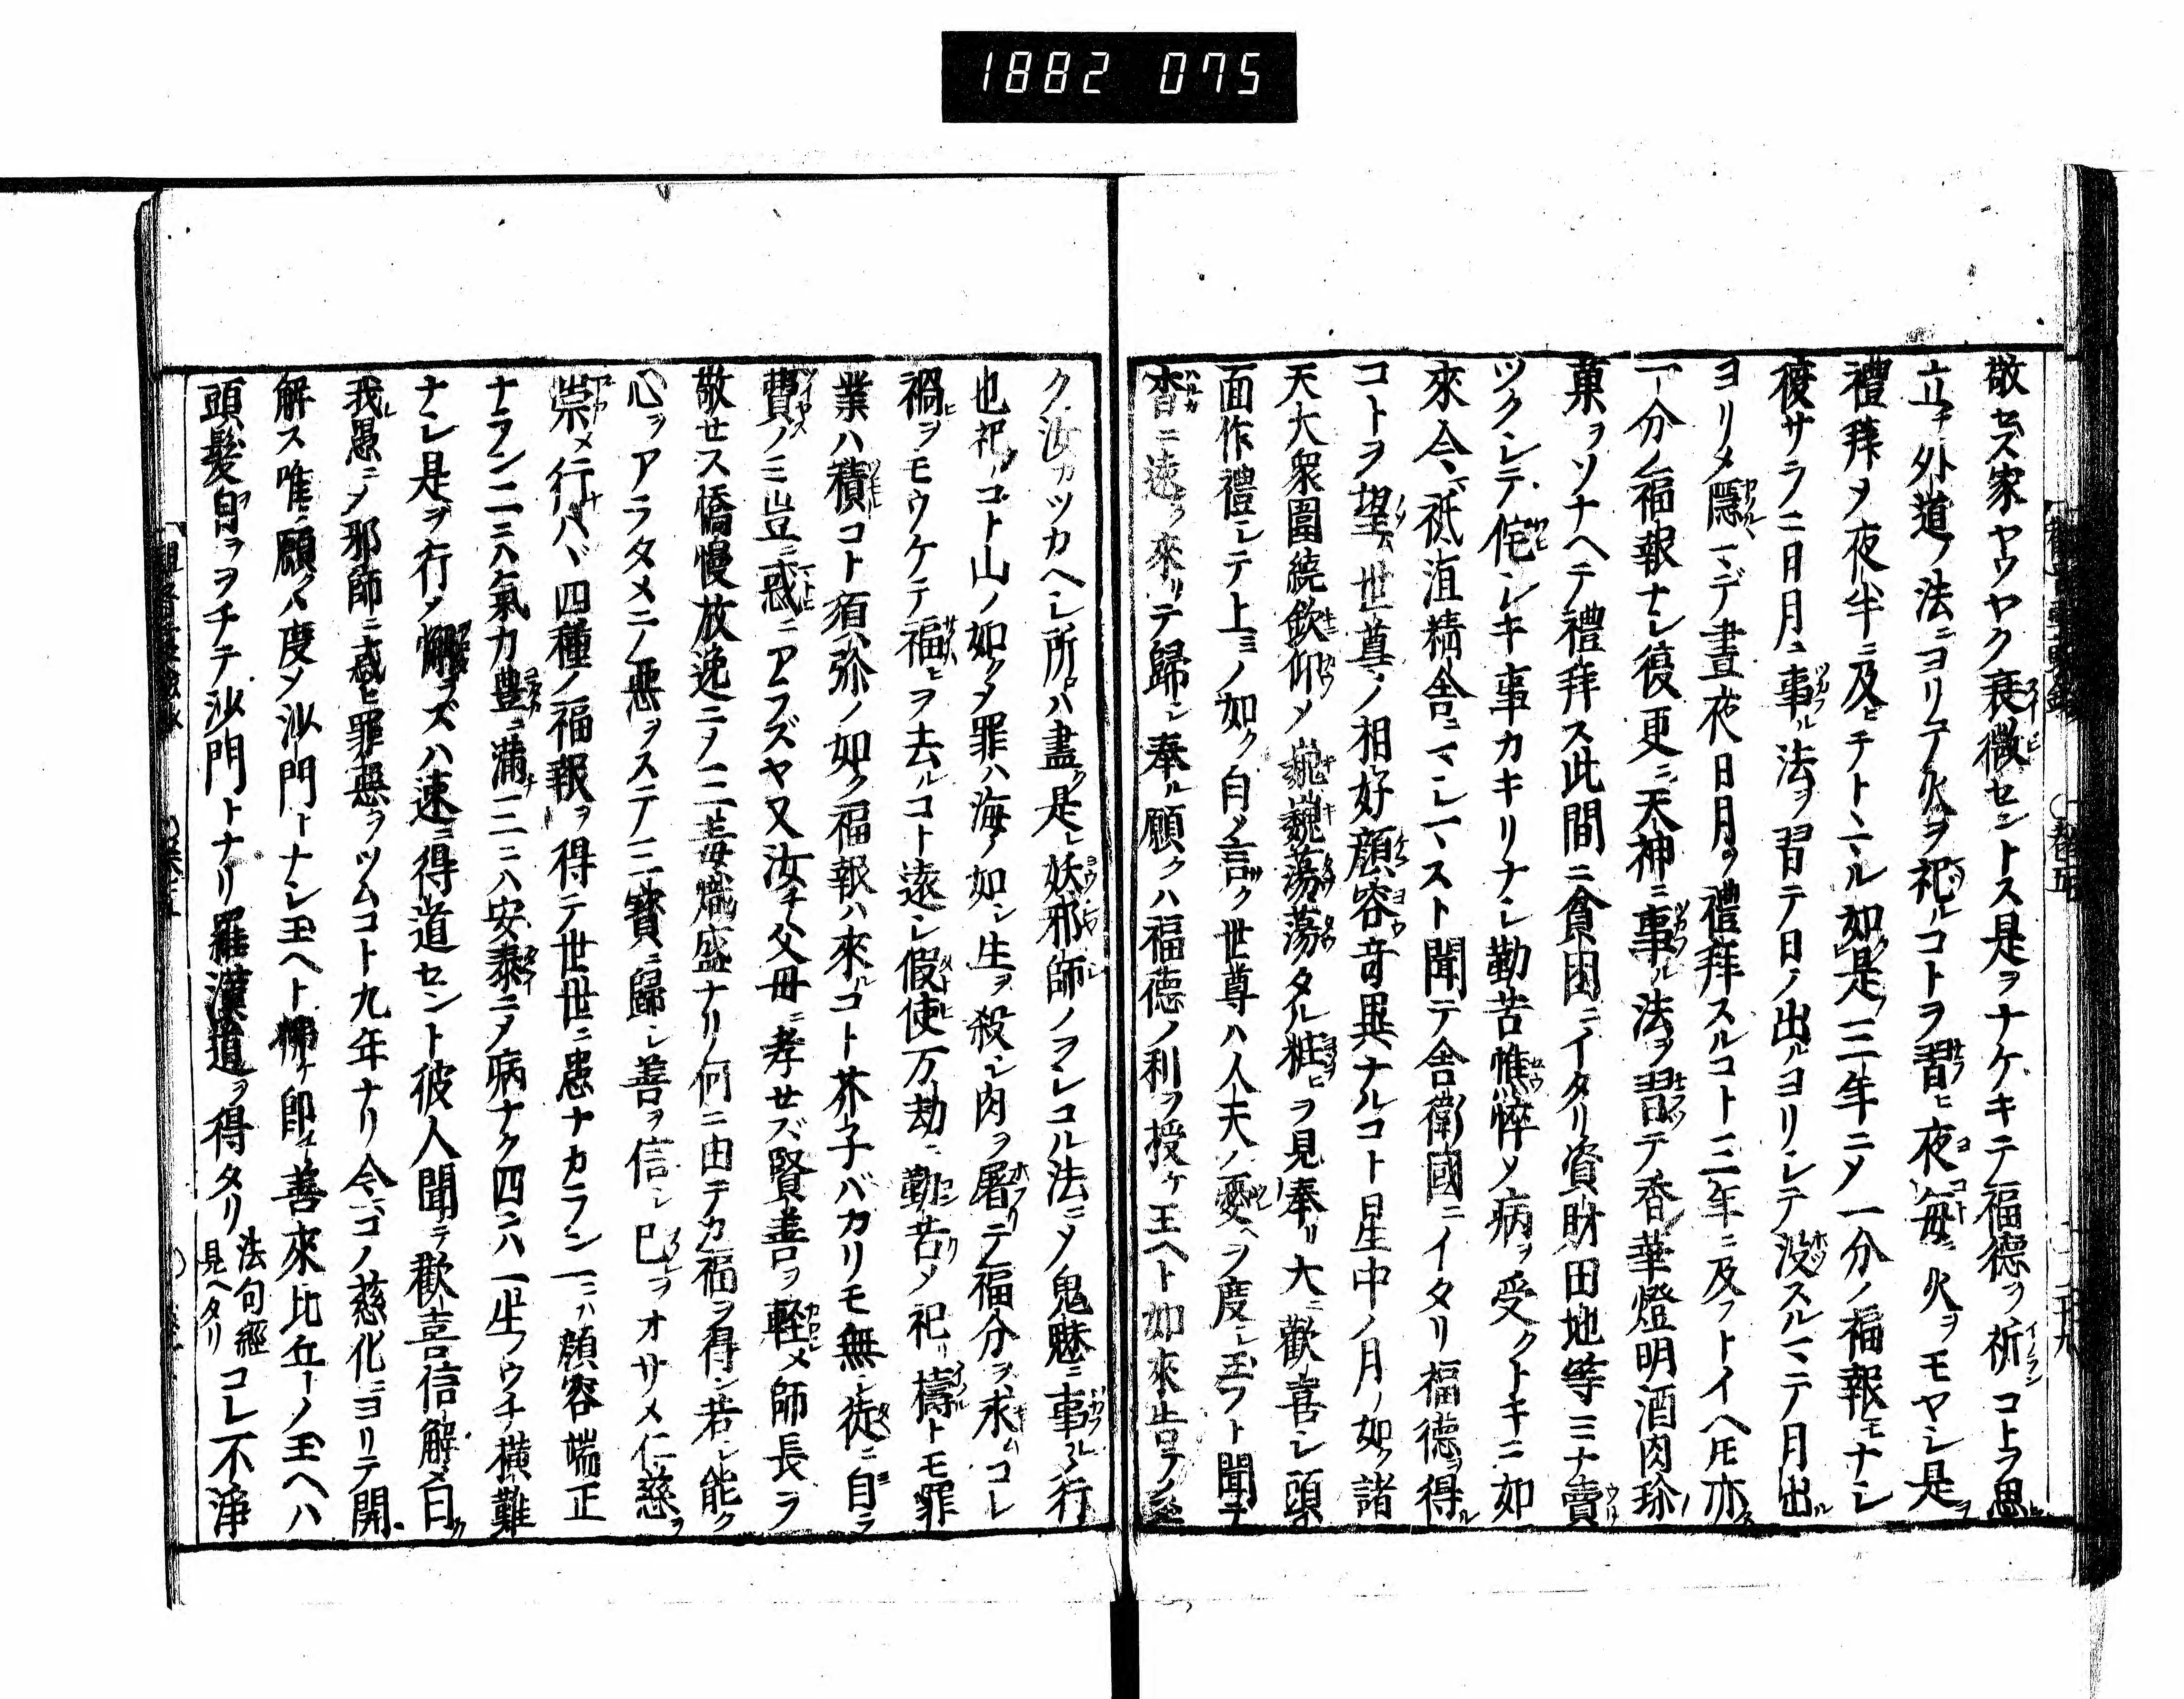 1882 075
敬セス家ヤウヤク衰微セントス是ヲナケキテ福德ヲ祈コトヲ思
立チ外道ノ法ニヨリテ火ヲ祀ルコトヲ習ヒ夜毎ニ火ヲモヤシ是ヲ
禮拜メ夜半ニ及ヒチトヽマル如是クノ三年ニメ一分ノ福報モナシ
復サラニ日月ニ事ル法ヲ習テ日ノ出ルヨリシテ没スルマテ月出ル
ヨリメ隱マデ晝夜日月ヲ禮拜スルコト三年ニ及フトイヘ𪜈亦
一分ノ福報ナシ復更ニ天神ニ事ル法ヲ習テ香華燈明酒肉珍
菓ヲソナヘテ禮拜ス此間ニ貧困ニイタリ資財田地等ミナ賣
ツクシテ侘シキ事カキリナシ勤苦憔悴メ病ヲ受クトキニ如
來今祇洹精舎ニマシマスト聞テ舎衛國ニイタリ福德ヲ得ル
コトヲ望ム世尊ノ相好顔容竒異ナルコト星中ノ月ノ如ク諸
天大衆圍繞欽仰メ巍巍蕩蕩タル粧ヒヲ見奉リ大ニ歡喜シ頭
面作禮シテ上ミノ如ク白メ言ク世尊ハ人天ノ憂ヘヲ度シ玉フト聞テ
杳ニ遠ヲ來リテ歸シ奉ル願クハ福德ノ利ヲ授ケ玉ヘト如來告テノ玉
ク汝カツカヘシ所ロハ盡ク是レ妖邪師ノヲシコル法ニメ鬼魅ニ事ルノ行
也祀ルコト山ノ如クメ罪ハ海ノ如シ生ヲ殺シ肉ヲ屠テ福分ヲ求ムコレ
禍ヒヲモウケテ福ヒヲ去ルコト遠シ假使万劫ニ勤苦メ祀リ禱トモ罪
業ハ積コト須弥ノ如ク福報ハ來ルコト芥子バカリモ無シ徒ニ自ラ
費ノミ豈ニ惑ニアラズヤ又汝チ父母ニ孝セズ賢善ヲ軽メ師長ヲ
敬セス憍慢放逸ニメ三毒熾盛ナリ何ニ由テカ福ヲ得ン若シ能ク
心ヲアラタメニメ惡ヲステ三寳ニ歸シ善ヲ信シ已ヲオサメ仁慈ヲ
崇メ行ハヾ四種ノ福報ヲ得テ世世ニ患ナカラン一ニハ顔容端正
ナラン二ニハ氣力豊ニ滿チ三ニハ安泰ニメ病ナク四ニハ一生ノウチ横難
ナシ是ヲ行メ懈ラズハ速ニ得道セント彼人聞テ歡喜信解メ曰ク
我レ愚ニメ邪師ニ惑ヒ罪惡ヲツムコト九年ナリ今コノ慈化ニヨリテ開
解ス唯願クハ度メ沙門トナシ玉ヘト佛ケ即チ善來比丘トノ玉ヘハ
頭髮自ヲヲチテ沙門トナリ羅漢道ヲ得タリ 法句經見ヘタリ コレ不淨